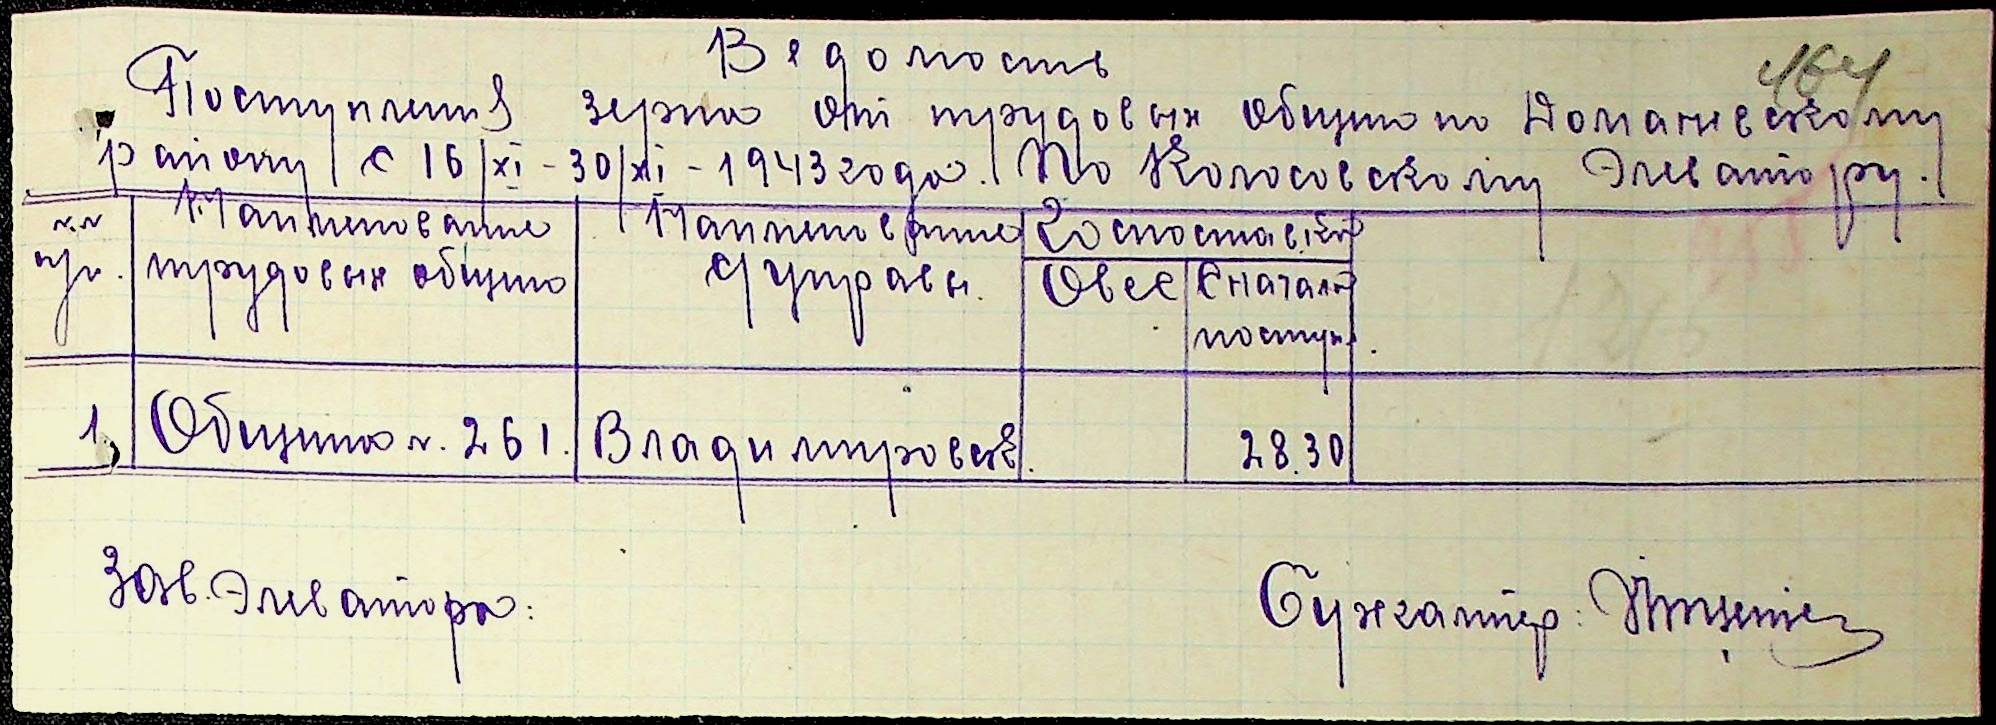 Ведомость
Поступления зерна от трудовых общин по Доманевскому
району с 16/XI – 30/XI – 1943 года. По Колосовскому Элеватору.
164
н.н п/п. | Наименование трудовых общин | Наименование управы. | Госпоставки
Овес | С начала поступ.
1. | Община н. 261. | Владимировск. | | 28.30
Зав. Элеватора: Бухгалтер: